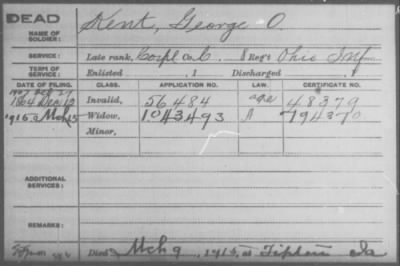 DEAD
NAME OF SOLDIER: Kent, George O.
SERVICE: Late rank, Corpl Co. C. 1 Reg't Ohio Inf
TERM OF SERVICE: Enlisted , 1 Discharged , 1
DATE OF FILING. CLASS. APPLICATION NO. LAW. CERTIFICATE NO.
1864 Dec 12 Invalid, 56484 age 48379
1915 Mch 15 Widow, 1043493 794370
Minor,
ADDITIONAL SERVICES:
REMARKS:
Died Mch 9, 1915, at Tipton Ia